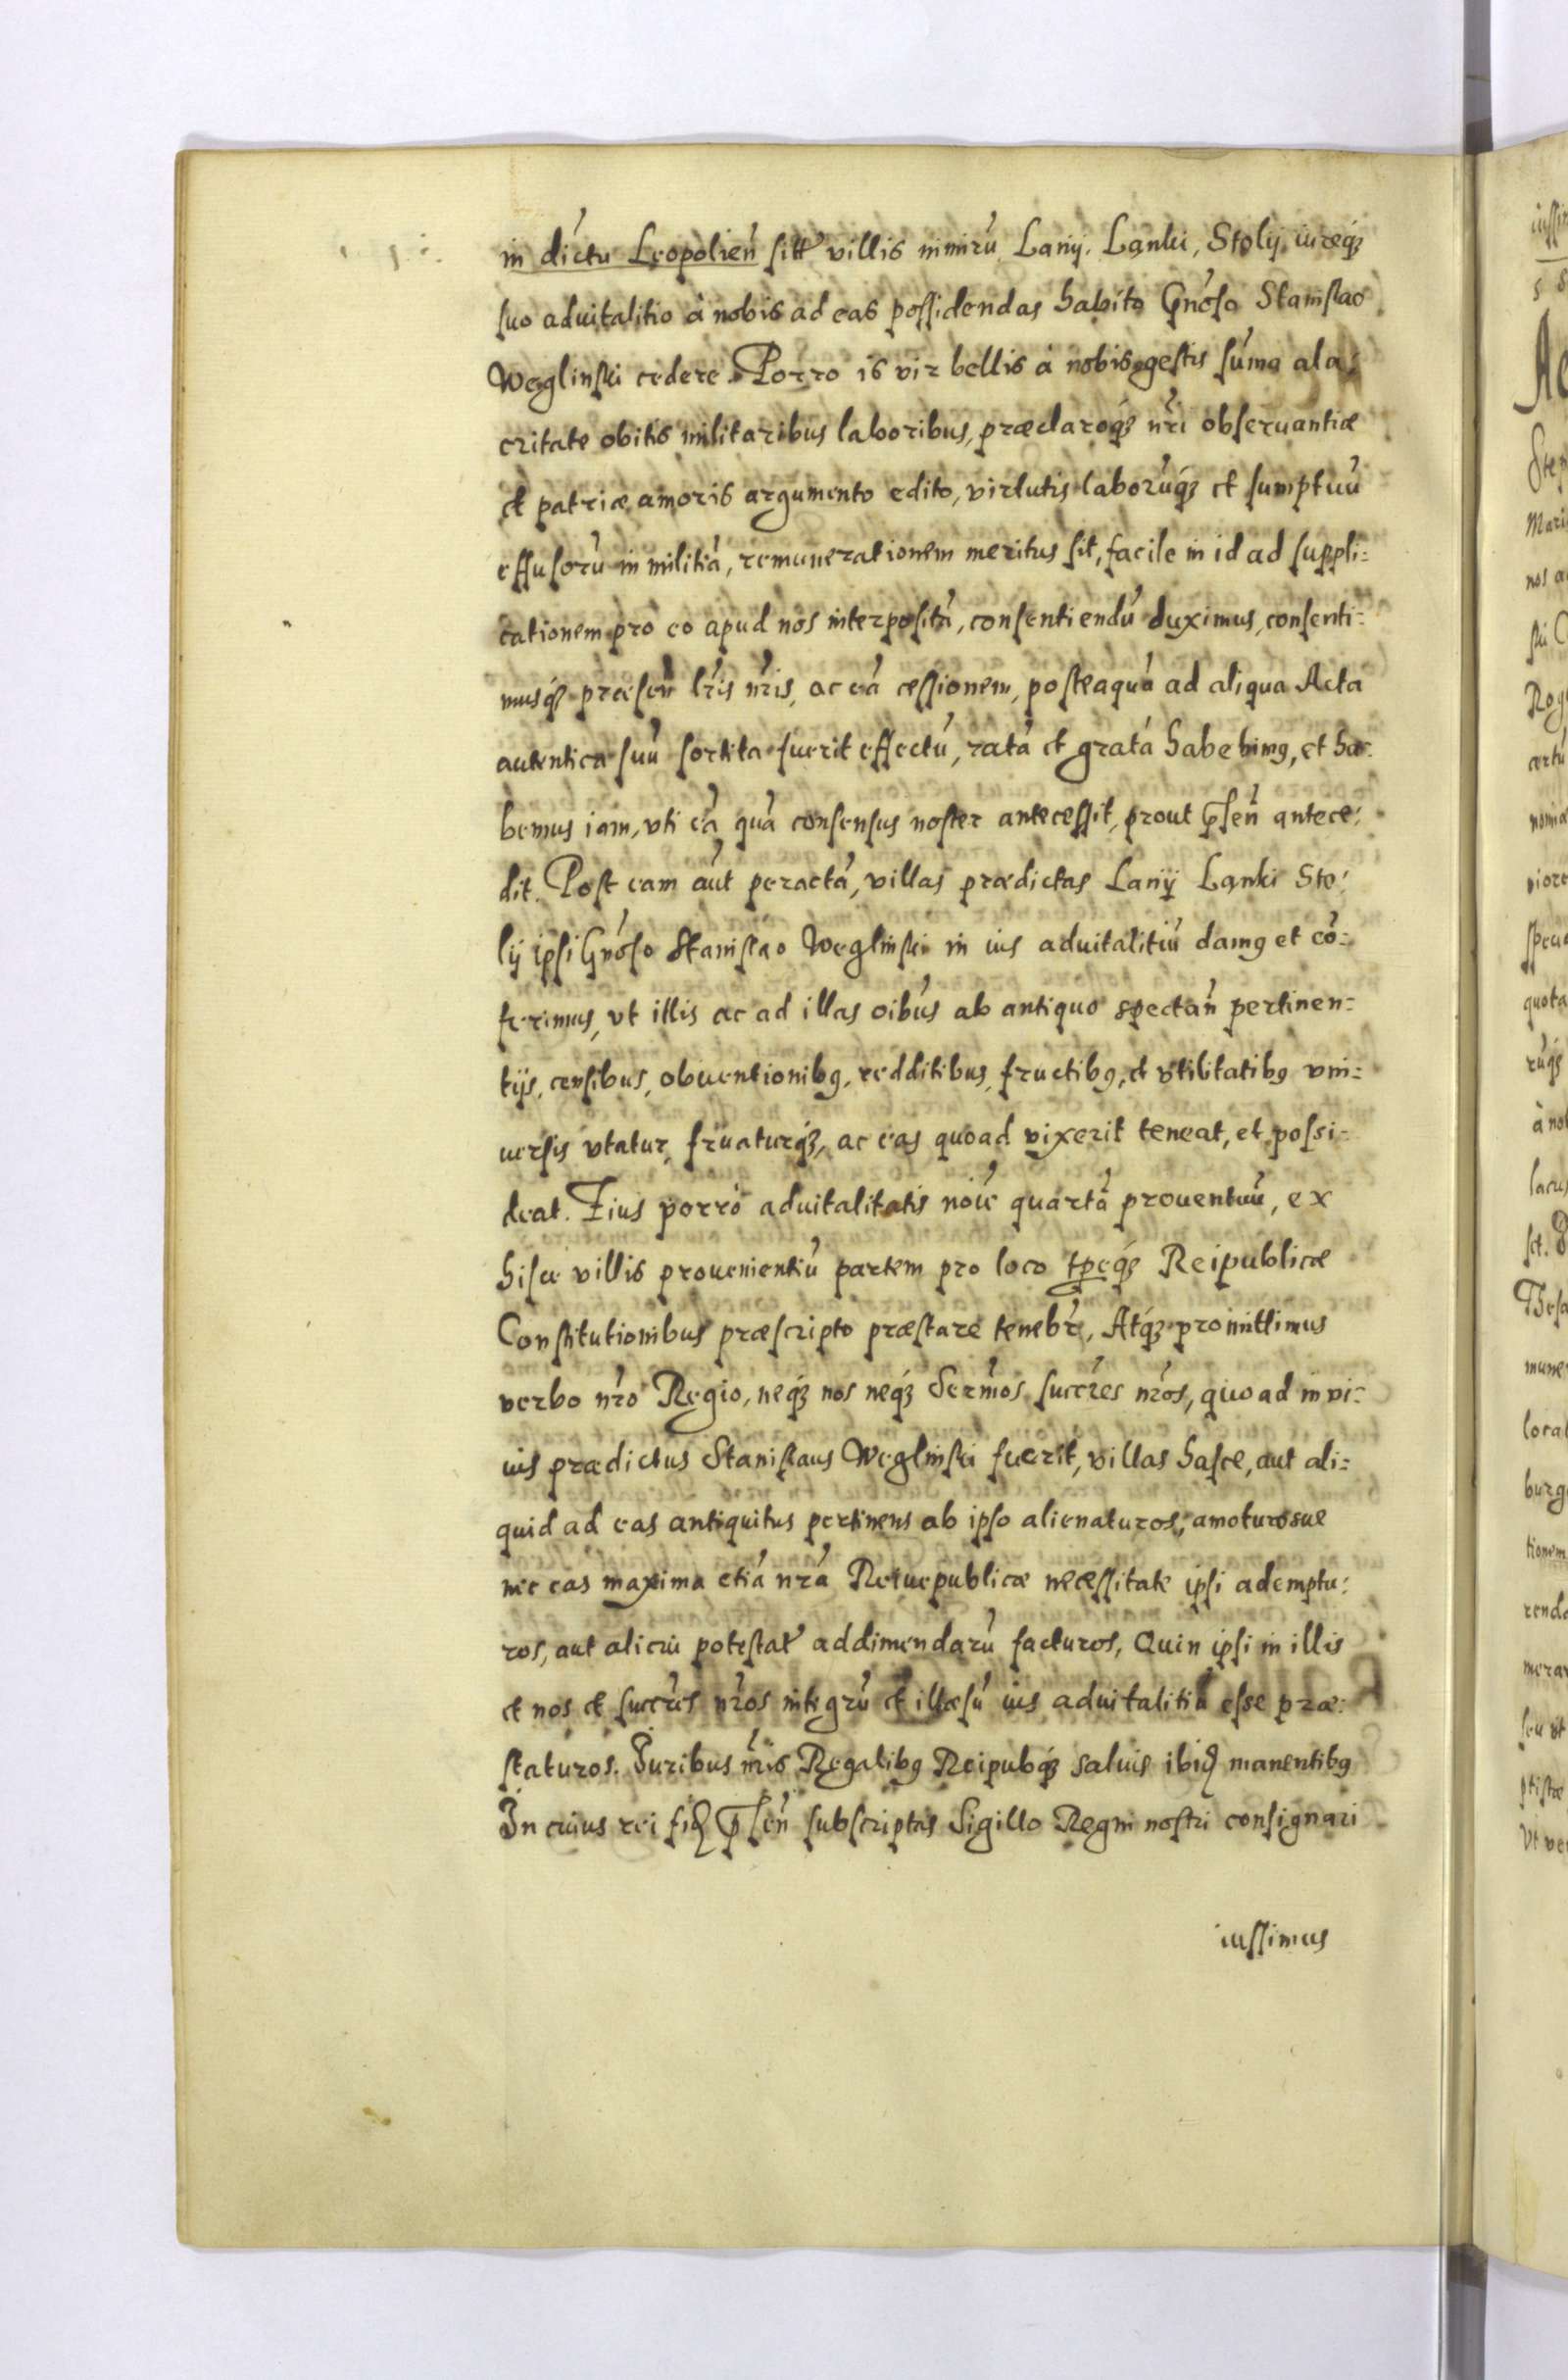 in dictu Leopolien̄ sitt villis nimirū Lanij. Lanki, Stolij. iureq́ꝫ
suo aduitalitio à nobis ad eas possidendas habito Gnōso Stanislao
Węglinski cedere. Porro is vir bellis à nobis gestis sūma ala:
critate obitis militaribus laboribus, præclaroq́ꝫ nr̄i obseruantiæ
et patriæ amoris argumento edito, virtutis laborūq́ꝫ et sumptuū
effusorū in militiā, remunerationem meritus sit, facile in id ad suppli:
cationem pro eo apud nos interpositā, consentiendū duximus, consenti:
musq́ꝫ præsen̄ lr̄is nr̄is, ac eā cessionem, posteaquā ad aliqua Acta
autentica suū sortita fuerit effectū, ratā et gratā habebimꝰ, et ha:
bemus iam, vti eā quā consensus noster antecessit, prout p̄sen̄ antece:
dit. Post eam aūt peractā, villas prædictas Lanij Lanki Sto:
lij ipsi Gnōso Stanislao Węglinski in ius aduitalitiū damꝰ et cō:
ferimus, vt illis ac ad illas oībus ab antiquo spectan̄ pertinen:
tijs, censibus, obuentionibꝰ, redditibus, fructibꝰ, et vtilitatibꝰ vni:
uersis vtatur, fruaturq́ꝫ, ac eas quoad vixerit teneat, et possi:
deat. Eius porrò aduitalitatis noīe quartā prouentuū, ex
hisce villis prouenientiū partem pro loco tpeq́ꝫ Reipublicæ
Constitutionibus præscripto præstare tenebr̄, Atq́ꝫ promittimus
verbo nr̄o Regio, neq́ꝫ nos neq́ꝫ Sermōs succr̄es nr̄os, quoad in vi:
uis prædictus Stanislaus Węglinski fuerit, villas hasce, aut ali:
quid ad eas antiquitus pertinens ab ipso alienaturos, amoturosue
nec eas maxima etiā nr̄a Reiuepublicæ necessitate ipsi ademptu:
ros, aut alicui potestat̄ addimendarū facturos, Quin ipsi in illis
et nos et succr̄es nr̄os integrū et illæsū ius aduitalitiū esse præ:
staturos. Juribus nr̄is Regalibꝰ Reipubq́ꝫ saluis ibiđ manentibꝰ
In cuius rei fiđ p̄sen̄ subscriptas Sigillo Regni nostri consignari
iussimus